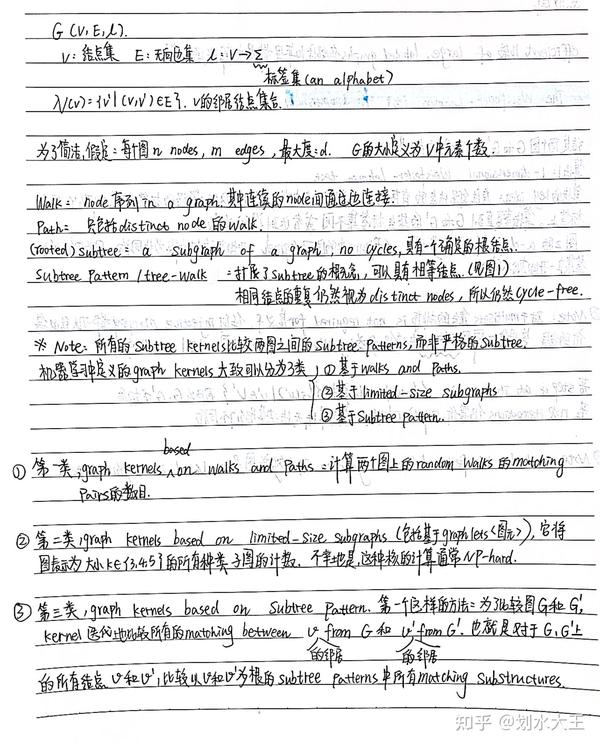 G(V, E, l).
V: 结点集 E: 无向边集 l: V→Σ
标签集 (an alphabet)
N(v)={v'|(v,v')∈E}. v的邻居结点集合.
为了简洁,假定: 每个图 n nodes, m edges, 最大度=d. G的大小定义为V中元素个数.
Walk: node序列 in a graph, 其中连续的node间通过边连接.
Path: 只包括distinct node的walk
(rooted) Subtree: a subgraph of a graph, no cycles, 具有一个确定的根结点.
Subtree Pattern / tree-walk = 扩展了subtree的概念, 可以具有相等结点. (见图1)
相同结点的重复仍然视为distinct nodes, 所以仍然cycle-free.
* Note: 所有的Subtree kernels比较两图之间的Subtree Patterns, 而非严格的Subtree.
机器学习中定义的graph kernels大致可以分为3类, ①基于walks and Paths.
②基于limited-size subgraphs
③基于Subtree pattern.
① 第一类, graph kernels based on walks and Paths = 计算两个图上的random walks的matching
Pairs的数目.
② 第二类, graph kernels based on limited-size subgraphs (包括基于graphlets<图元>), 它将
图表示为大小k∈{3,4,5}的所有种类子图的计数. 不幸地是, 这种核的计算通常NP-hard.
③ 第三类, graph kernels based on Subtree Pattern. 第一个这样的方法: 为了比较图G和G',
kernel迭代地比较所有的matching between v from G 和 v' from G'. 也就是对于G, G'上
的邻居 的邻居
的所有结点v和v', 比较以v和v'为根的subtree patterns中所有matching substructures.
知乎 @划水大王